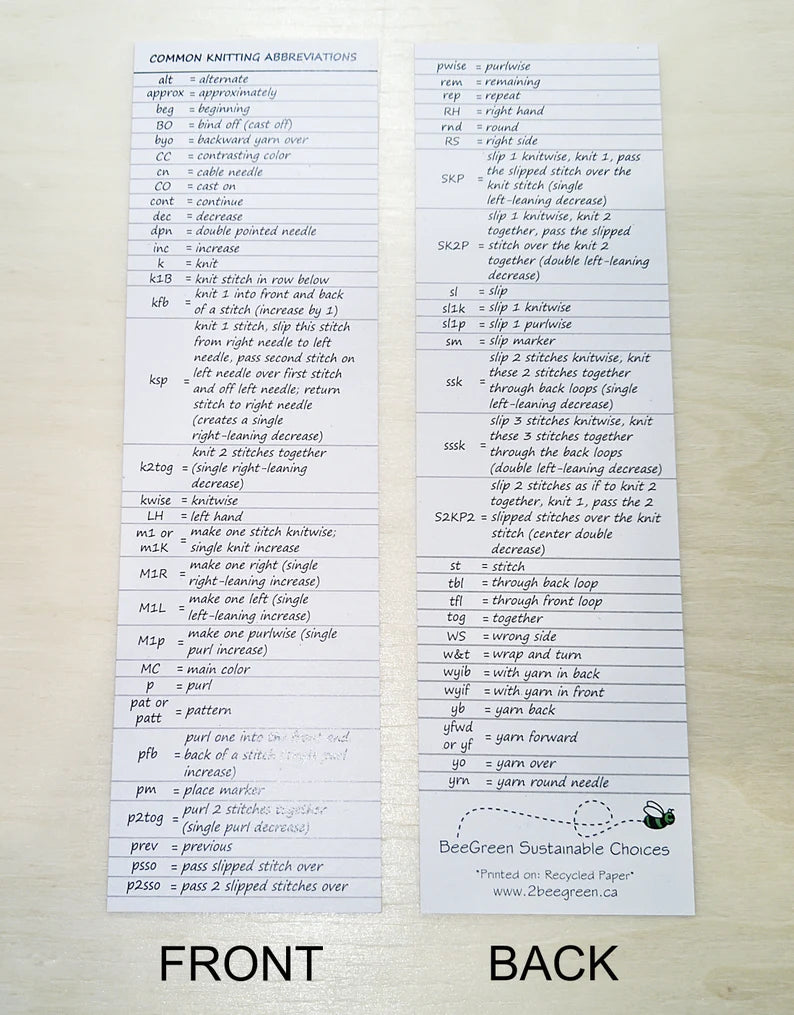 COMMON KNITTING ABBREVIATIONS
alt = alternate
approx = approximately
beg = beginning
BO = bind off (cast off)
byo = backward yarn over
CC = contrasting color
cn = cable needle
CO = cast on
cont = continue
dec = decrease
dpn = double pointed needle
inc = increase
k = knit
k1B = knit stitch in row below
kfb = knit 1 into front and back
of a stitch (increase by 1)
knit 1 stitch, slip this stitch
from right needle to left
needle, pass second stitch on
ksp = left needle over first stitch
and off left needle; return
stitch to right needle
(creates a single
right-leaning decrease)
knit 2 stitches together
k2tog = (single right-leaning
decrease)
kwise = knitwise
LH = left hand
m1 or = make one stitch knitwise;
m1K single knit increase
M1R = make one right (single
right-leaning increase)
M1L = make one left (single
left-leaning increase)
M1p = make one purlwise (single
purl increase)
MC = main color
p = purl
pat or
patt = pattern
purl one into the front and
pfb = back of a stitch (single purl
increase)
pm = place marker
p2tog = purl 2 stitches together
(single purl decrease)
prev = previous
psso = pass slipped stitch over
p2sso = pass 2 slipped stitches over
FRONT
pwise = purlwise
rem = remaining
rep = repeat
RH = right hand
rnd = round
RS = right side
slip 1 knitwise, knit 1, pass
SKP = the slipped stitch over the
knit stitch (single
left-leaning decrease)
slip 1 knitwise, knit 2
together, pass the slipped
SK2P = stitch over the knit 2
together (double left-leaning
decrease)
sl = slip
sl1k = slip 1 knitwise
sl1p = slip 1 purlwise
sm = slip marker
slip 2 stitches knitwise, knit
ssk = these 2 stitches together
through back loops (single
left-leaning decrease)
slip 3 stitches knitwise, knit
sssk = these 3 stitches together
through the back loops
(double left-leaning decrease)
slip 2 stitches as if to knit 2
together, knit 1, pass the 2
S2KP2 = slipped stitches over the knit
stitch (center double
decrease)
st = stitch
tbl = through back loop
tfl = through front loop
tog = together
WS = wrong side
w&t = wrap and turn
wyib = with yarn in back
wyif = with yarn in front
yb = yarn back
yfwd
or yf = yarn forward
yo = yarn over
yrn = yarn round needle
BeeGreen Sustainable Choices
*Printed on: Recycled Paper*
www.2beegreen.ca
BACK